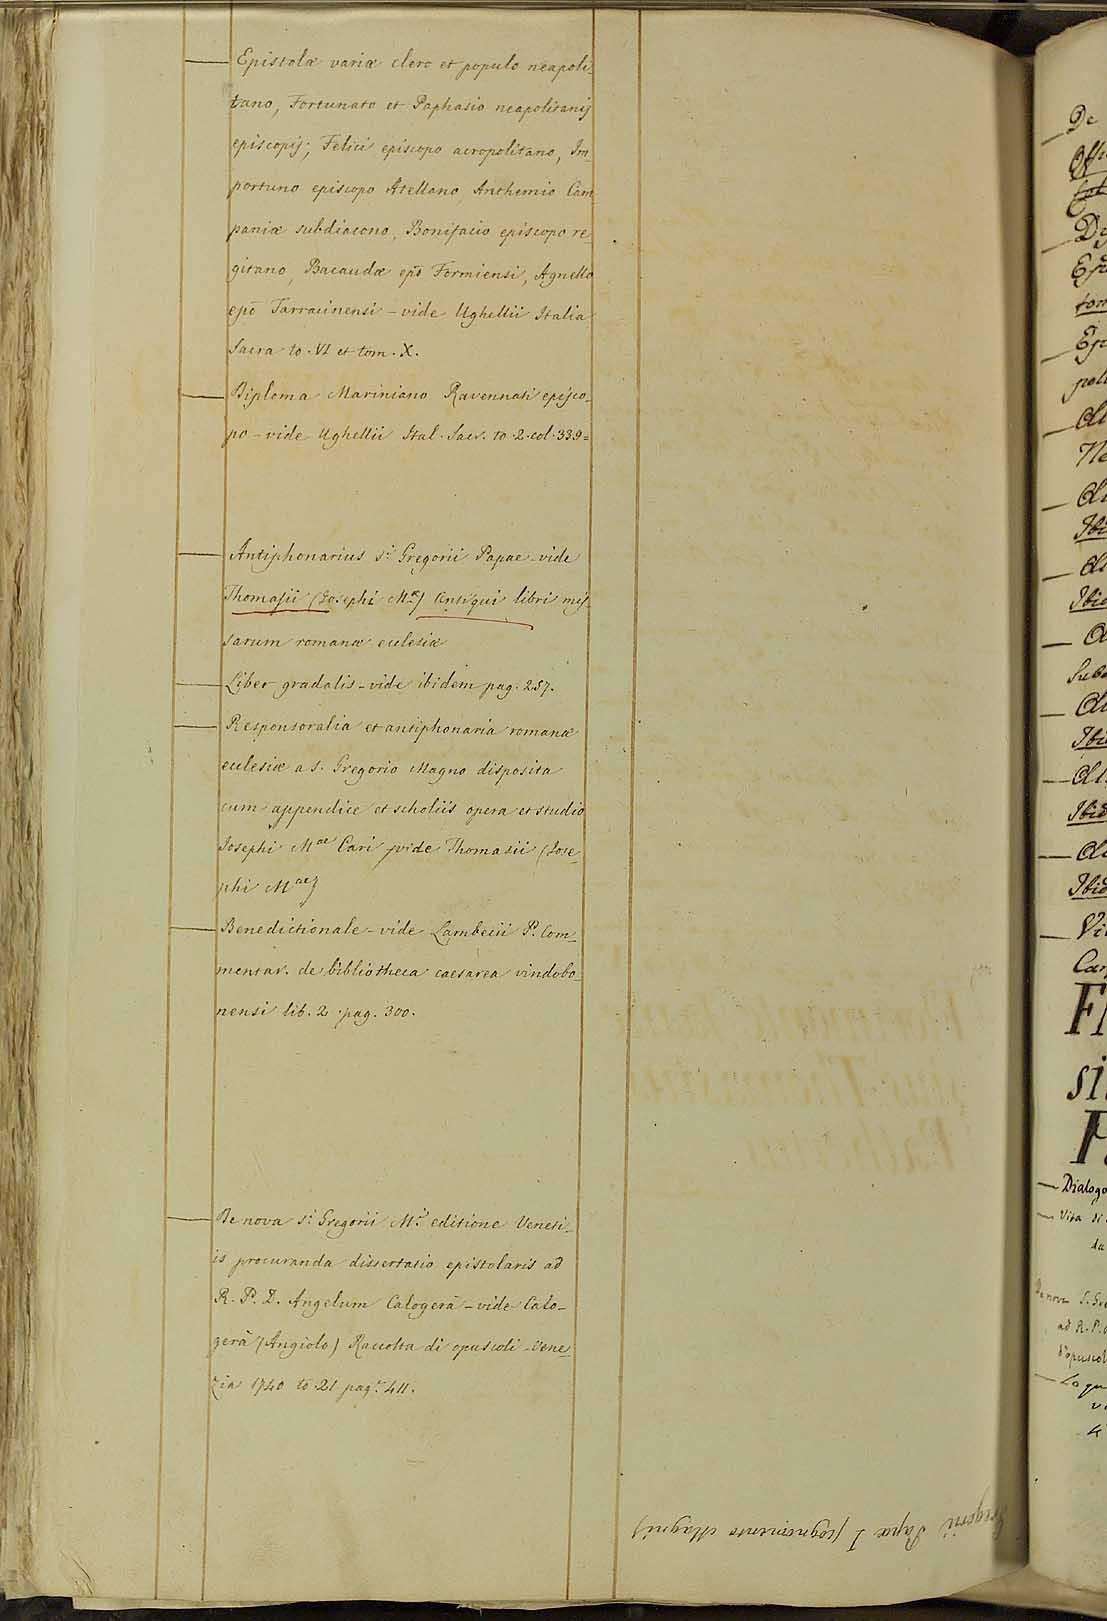 — Epistolæ variæ clero et populo neapoli-
tano, Fortunato et Paphasio neapolitanij
episcopij; Felici episcopo acropolitano, Im-
portuno episcopo Atellano, Anthemio Cam
paniæ subdiacono, Bonifacio episcopo re-
gitano, Bacaudæ epō Formiensi, Agnello
epō Tarracinensi – vide Ughellii Italia
Sacra to. VI et tom. X.
— Diploma Mariniano Ravennati episco-
po – vide Ughellii Ital. Sacr. to. 2. col. 339=
— Antiphonarius s.ⁱ Gregorii Papae – vide
Thomasii (Josephi M.ᵃᵉ) Antiqui libri mis
sarum romanæ eclesiæ
— Liber gradalis – vide ibidem pag. 257.
— Responsoralia et antiphonaria romanæ
eclesiæ a s. Gregorio Magno disposita
cum appendice et scholiis opera et studio
Josephi Mᵃᵉ Cari vide Thomasii (Jose-
phi Mᵃᵉ)
— Benedictionale – vide Lambecii P. Com-
mentar. de bibliotheca caesarea vindobo-
nensi lib. 2. pag. 300.
— De nova s.ⁱ Gregorii M.ⁱ editione Veneti-
is procuranda dissertatio epistolaris ad
R. P. D. Angelum Calogerà – vide Calo-
gerà (Angiolo) Raccolta di opuscoli – Vene-
zia 1740 to 21 pag. 411.
Gregorii Papæ I (cognomento Magni)
— De
— De
— Di
— Di
Ibi
— Di
Ibid
— Di
Ibid
— Di
Ibid
— Vi
Car
— Dialogo
— Vita di
De nova S. Gre
ad R. P.
d'opuscol